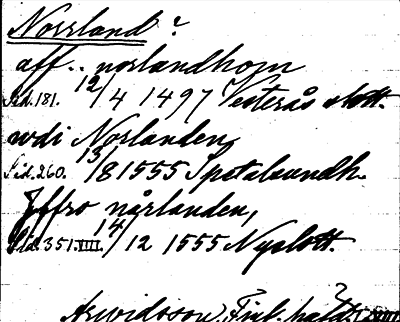 Norrland?
aff.. norlandhom
Sid. 181. 12/4 1497 Vesterås slott.
wdi Norlanden,
Sid. 260. 13/8 1555 Spetalsundh.
Yffro nårlanden,
Sid. 351. VIII. 14/12 1555 Nyslott.
Arwidsson, Finl. hand.